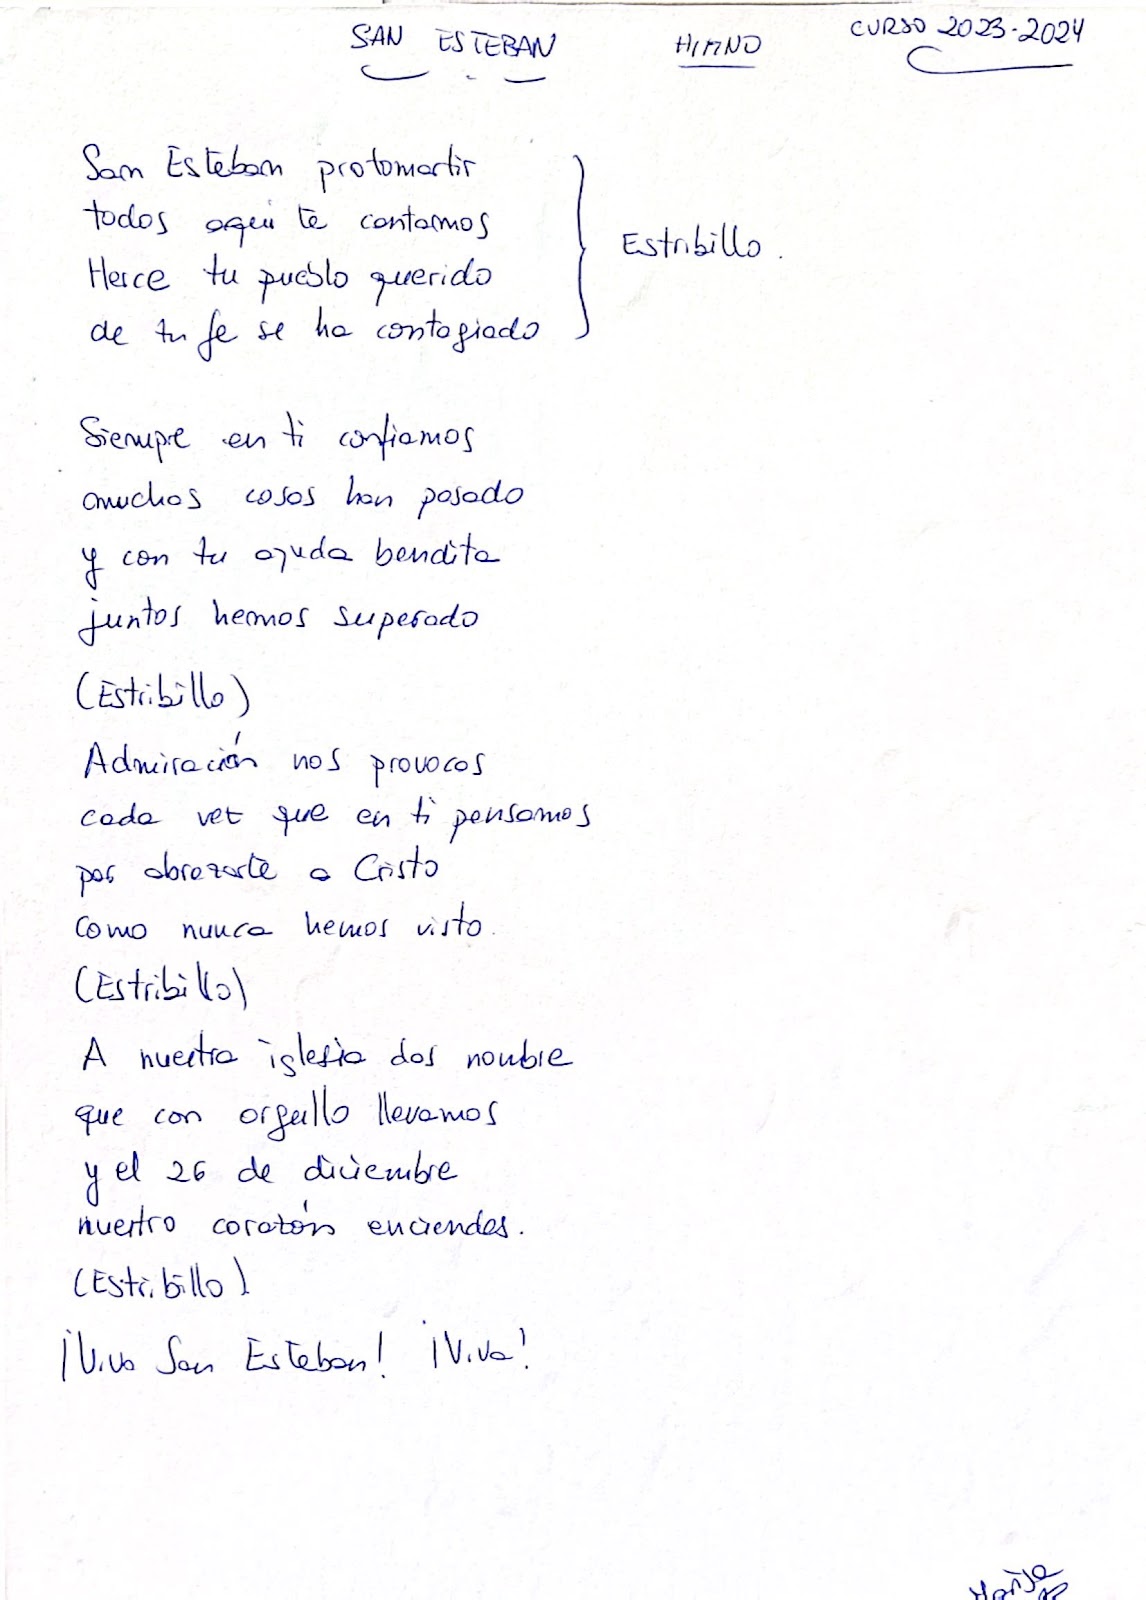 SAN ESTEBAN HIMNO CURSO 2023-2024
San Esteban protomartir
todos aquí te cantamos
Herce tu pueblo querido
de tu fe se ha contagiado
Estribillo.
Siempre en ti confiamos
muchas cosas han pasado
y con tu ayuda bendita
juntos hemos superado
(Estribillo)
Admiración nos provocas
cada vez que en ti pensamos
por abrazarte a Cristo
como nunca hemos visto.
(Estribillo)
A nuestra iglesia das nombre
que con orgullo llevamos
y el 26 de diciembre
nuestro corazón enciendes.
(Estribillo)
¡Viva San Esteban! ¡Viva!